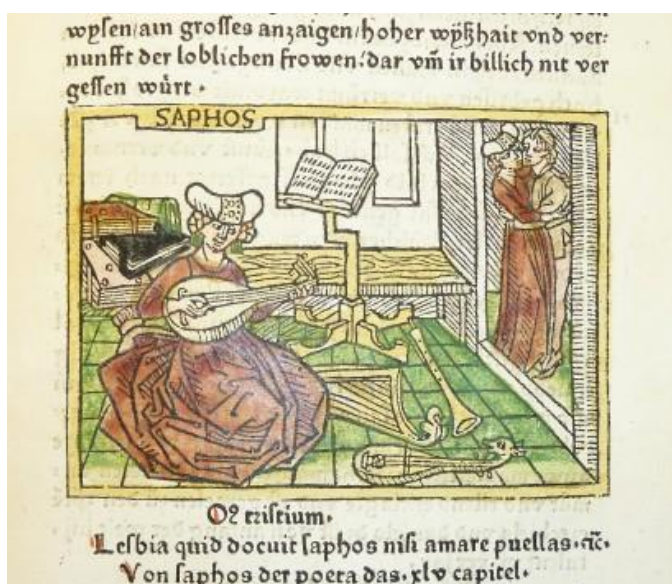 wysen/ain grosses anzaigen/hoher wÿßhait vnd ver:
nunfft der loblichen frowen/dar vm̄ ir billich nit ver
gessen wůrt.
SAPHOS
tristium.
Lesbia quid docuit saphos nisi amare puellas. ⁊c.
Von saphos der poeta das. xlv capitel.